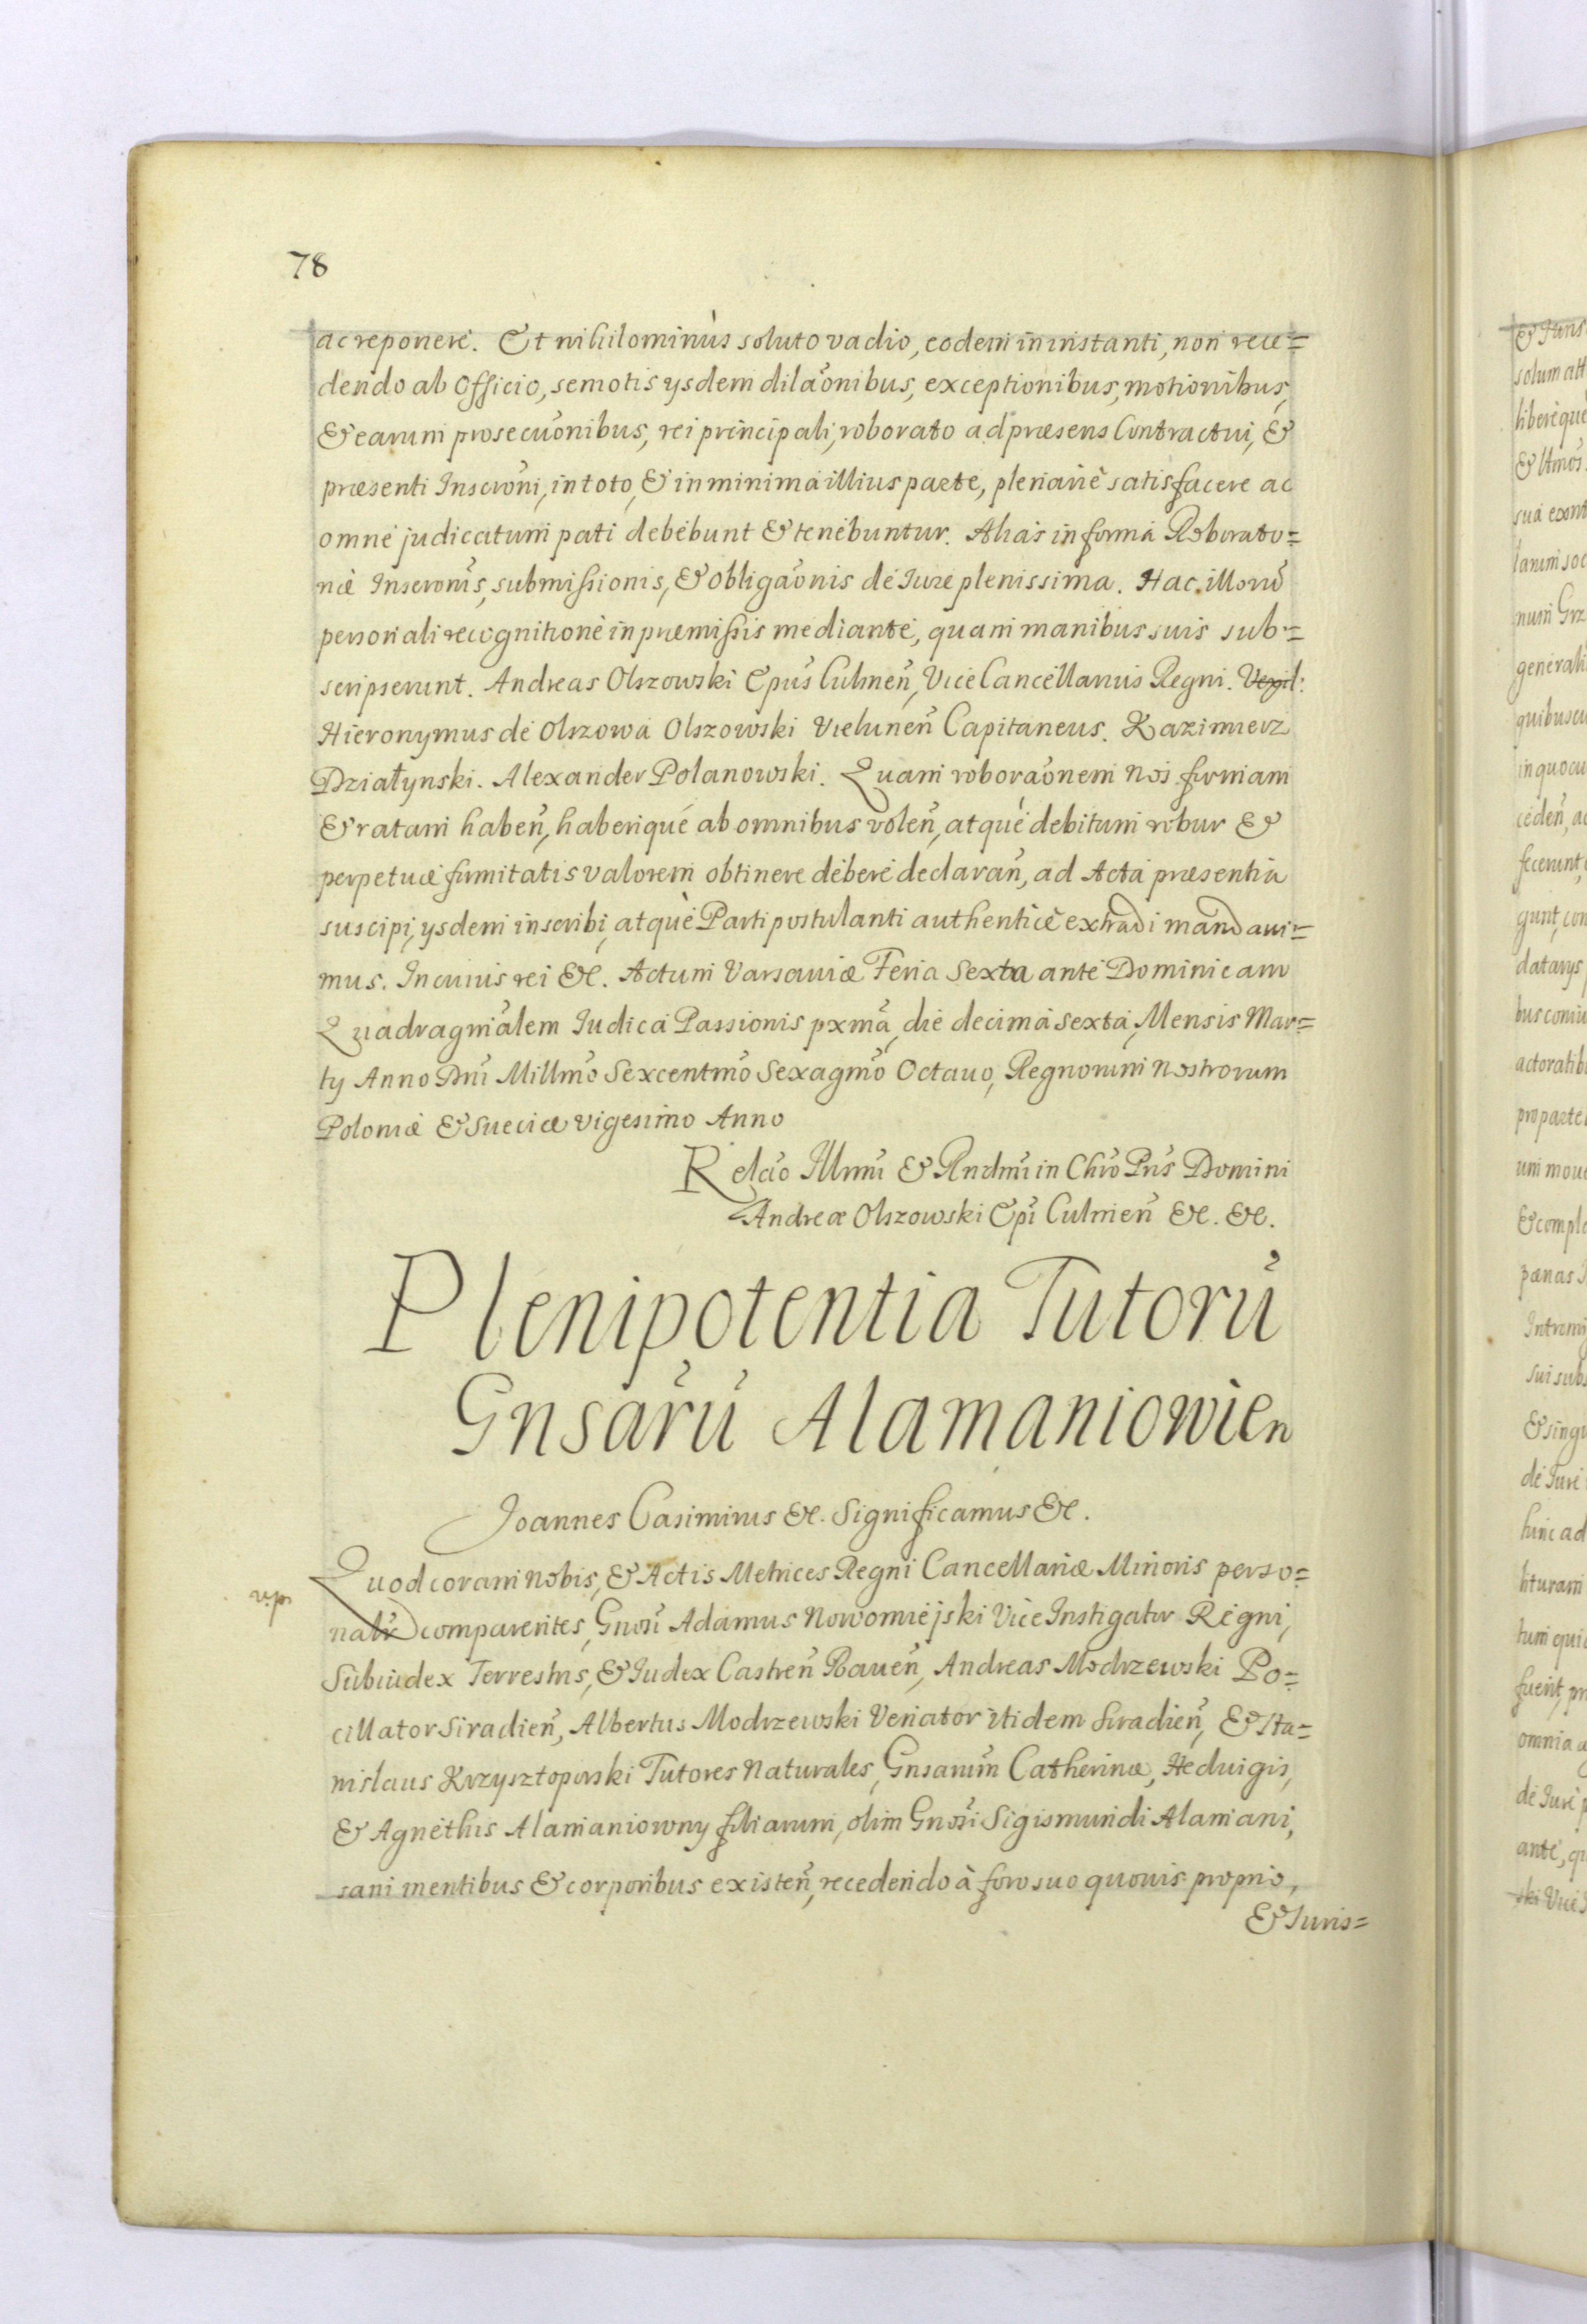 78
ac reponere. Et nihilominùs soluto vadio, eodem in instanti, non rece=
dendo ab Officio, semotis ysdem dilaõnibus, exceptionibus, motionibus,
& earum prosecuõnibus, rei principali, roborato ad præsens Contractui, &
præsenti Inscrõni, in toto, & in minimá illius parte, plenariè satisfacere ac
omne judicatum pati debebunt & tenebuntur. Aliàs in formá Roborato=
riæ Inscronĩs, submissionis, & obligaõnis de Iure plenissima. Hac illorũ
personali recognitione in præmissis mediante, quam manibus suis sub=
scripserunt. Andreas Olszowski Epũs Culmeñ, Vice Cancellarius Regni. Vexil:
Hieronymus de Olszowá Olszowski Vieluneñ Capitaneus. Kazimierz
Działynski. Alexander Polanowski. Quam roboraõnem Nos firmam
& ratam habeñ, haberiqué ab omnibus voleñ, atquè debitum robur &
perpetuæ firmitatis valorem obtinere debere declarañ, ad Acta præsentia
suscipi, ysdem inscribi, atquè Parti postulanti authenticè extradi mandaui=
mus. In cuius rei &c. Actum Varsauiæ Feria Sexta ante Dominicam
Quadragmãlem Iudicá Passionis pxmã, die decimá sextá, Mensis Mar=
ty Anno Dnĩ Millmõ Sexcentmõ Sexagmõ Octauo, Regnorum Nostrorum
Poloniæ & Sueciæ vigesimo Anno
Relcĩo Illmĩ & Rndmĩ in Chrõ Prĩs Domini
Andreæ Olszowski Epĩ Culmeñ &c. &c.
Plenipotentia Tutorũ
Gnsãrũ Alamaniowien
Joannes Casimirus &c. Significamus &c.
Quod coram Nobis, & Actis Metrices Regni Cancellariæ Minoris perso=
nalr̃ comparentes, Gnosĩ Adamus Nowomiejski Vice Instigator Regni,
Subiudex Terrestris, & Iudex Castreñ Raueñ, Andreas Modrzewski Po=
cillator Siradieñ, Albertus Modrzewski Venator itidem Siradieñ, & Sta=
nislaus Krzysztoporski Tutores Naturales, Gnsarũm Catherinæ, Heduigis,
& Agnethis Alamaniowny filiarum, olim Gnosĩ Sigismundi Alamani,
sani mentibus & corporibus existeñ, recedendo à foro suo quouis proprio,
& Iuris=